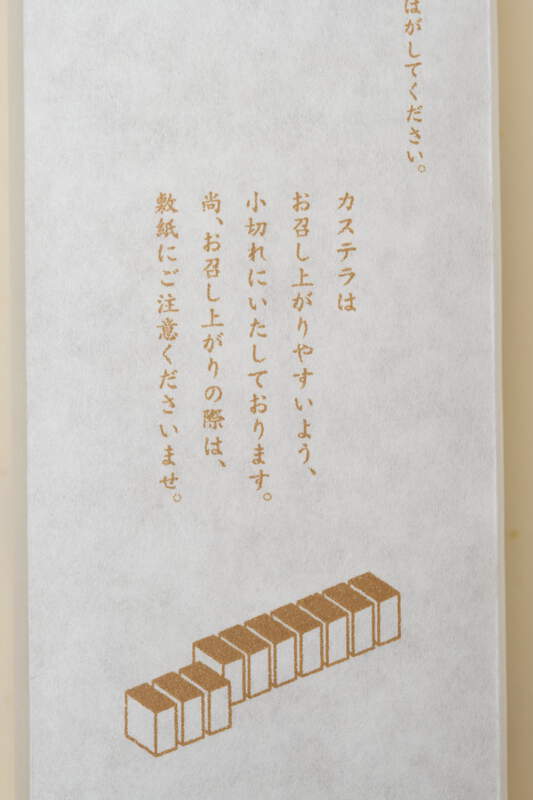 はがしてください。
カステラは
お召し上がりやすいよう、
小切れにいたしております。
尚、お召し上がりの際は、
敷紙にご注意くださいませ。